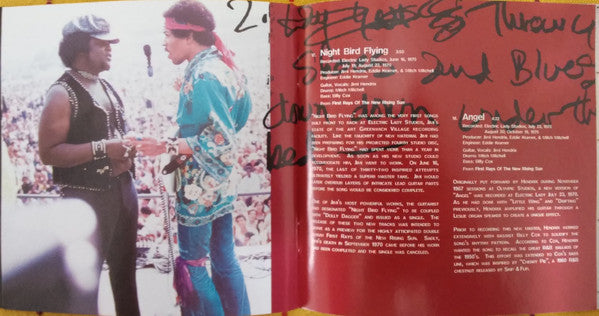 2.
Throway
and Blues
down
17. Night Bird Flying 3:50
Recorded: Electric Lady Studios, June 16, 1970
July 19, August 22, 1970
Producer: Jimi Hendrix, Eddie Kramer, & Mitch Mitchell
Engineer: Eddie Kramer
Guitar, Vocals: Jimi Hendrix
Drums: Mitch Mitchell
Bass: Billy Cox
From First Rays Of The New Rising Sun
"Night Bird Flying" was among the very first songs
built from scratch at Electric Lady Studios, Jimi's
state of the art Greenwich Village recording
facility. Like the majority of new material Jimi had
been preparing for his projected fourth studio disc,
"Night Bird Flying" had spent more than a year in
development. As soon as his new studio could
accommodate him, Jimi went to work. On June 16,
1970, the last of thirty-two inspired attempts
ultimately yielded a superb master take. Jimi would
later overdub layers of intricate lead guitar parts
before the song would be considered complete.
One of Jimi's most powerful works, the guitarist
had designated "Night Bird Flying" to be coupled
with "Dolly Dagger" and issued as a single. The
release of these two new tracks was intended to
serve as a preview for the highly anticipated double
album First Rays Of The New Rising Sun. Sadly,
Jimi's death in September 1970 came before his work
had been completed and the single was canceled.
18. Angel 4:22
Recorded: Electric Lady Studios, July 23, 1970
August 20, October 19, 1970
Producer: Jimi Hendrix, Eddie Kramer, & Mitch Mitchell
Engineer: Eddie Kramer
Guitar, Vocals: Jimi Hendrix
Drums: Mitch Mitchell
Bass: Billy Cox
From First Rays Of The New Rising Sun
Originally put forward by Hendrix during November
1967 sessions at Olympic Studios, a new version of
"Angel" was recorded at Electric Lady July 23, 1970.
As he had done with "Little Wing" and "Drifting"
previously, Hendrix amplified his guitar through a
Leslie organ speaker to create a unique effect.
Prior to recording this new master, Hendrix worked
extensively with bassist Billy Cox to solidify the
song's rhythm pattern. According to Cox, Hendrix
wanted the song to recall the great R&B ballads of
the 1950's. This effort extended to Cox's bass
line, which was inspired by "Cherry Pie", a 1960 R&B
chestnut released by Skip & Flip.